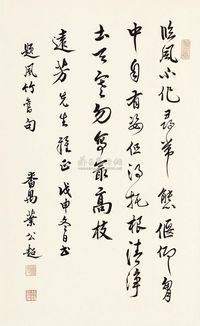 臨風不作尋常態偃仰胷
中自有姿但得托根清淨
土勿寫最高枝
遠芳先生雅正 戊申冬日書
題風竹舊句 番禺葉公超